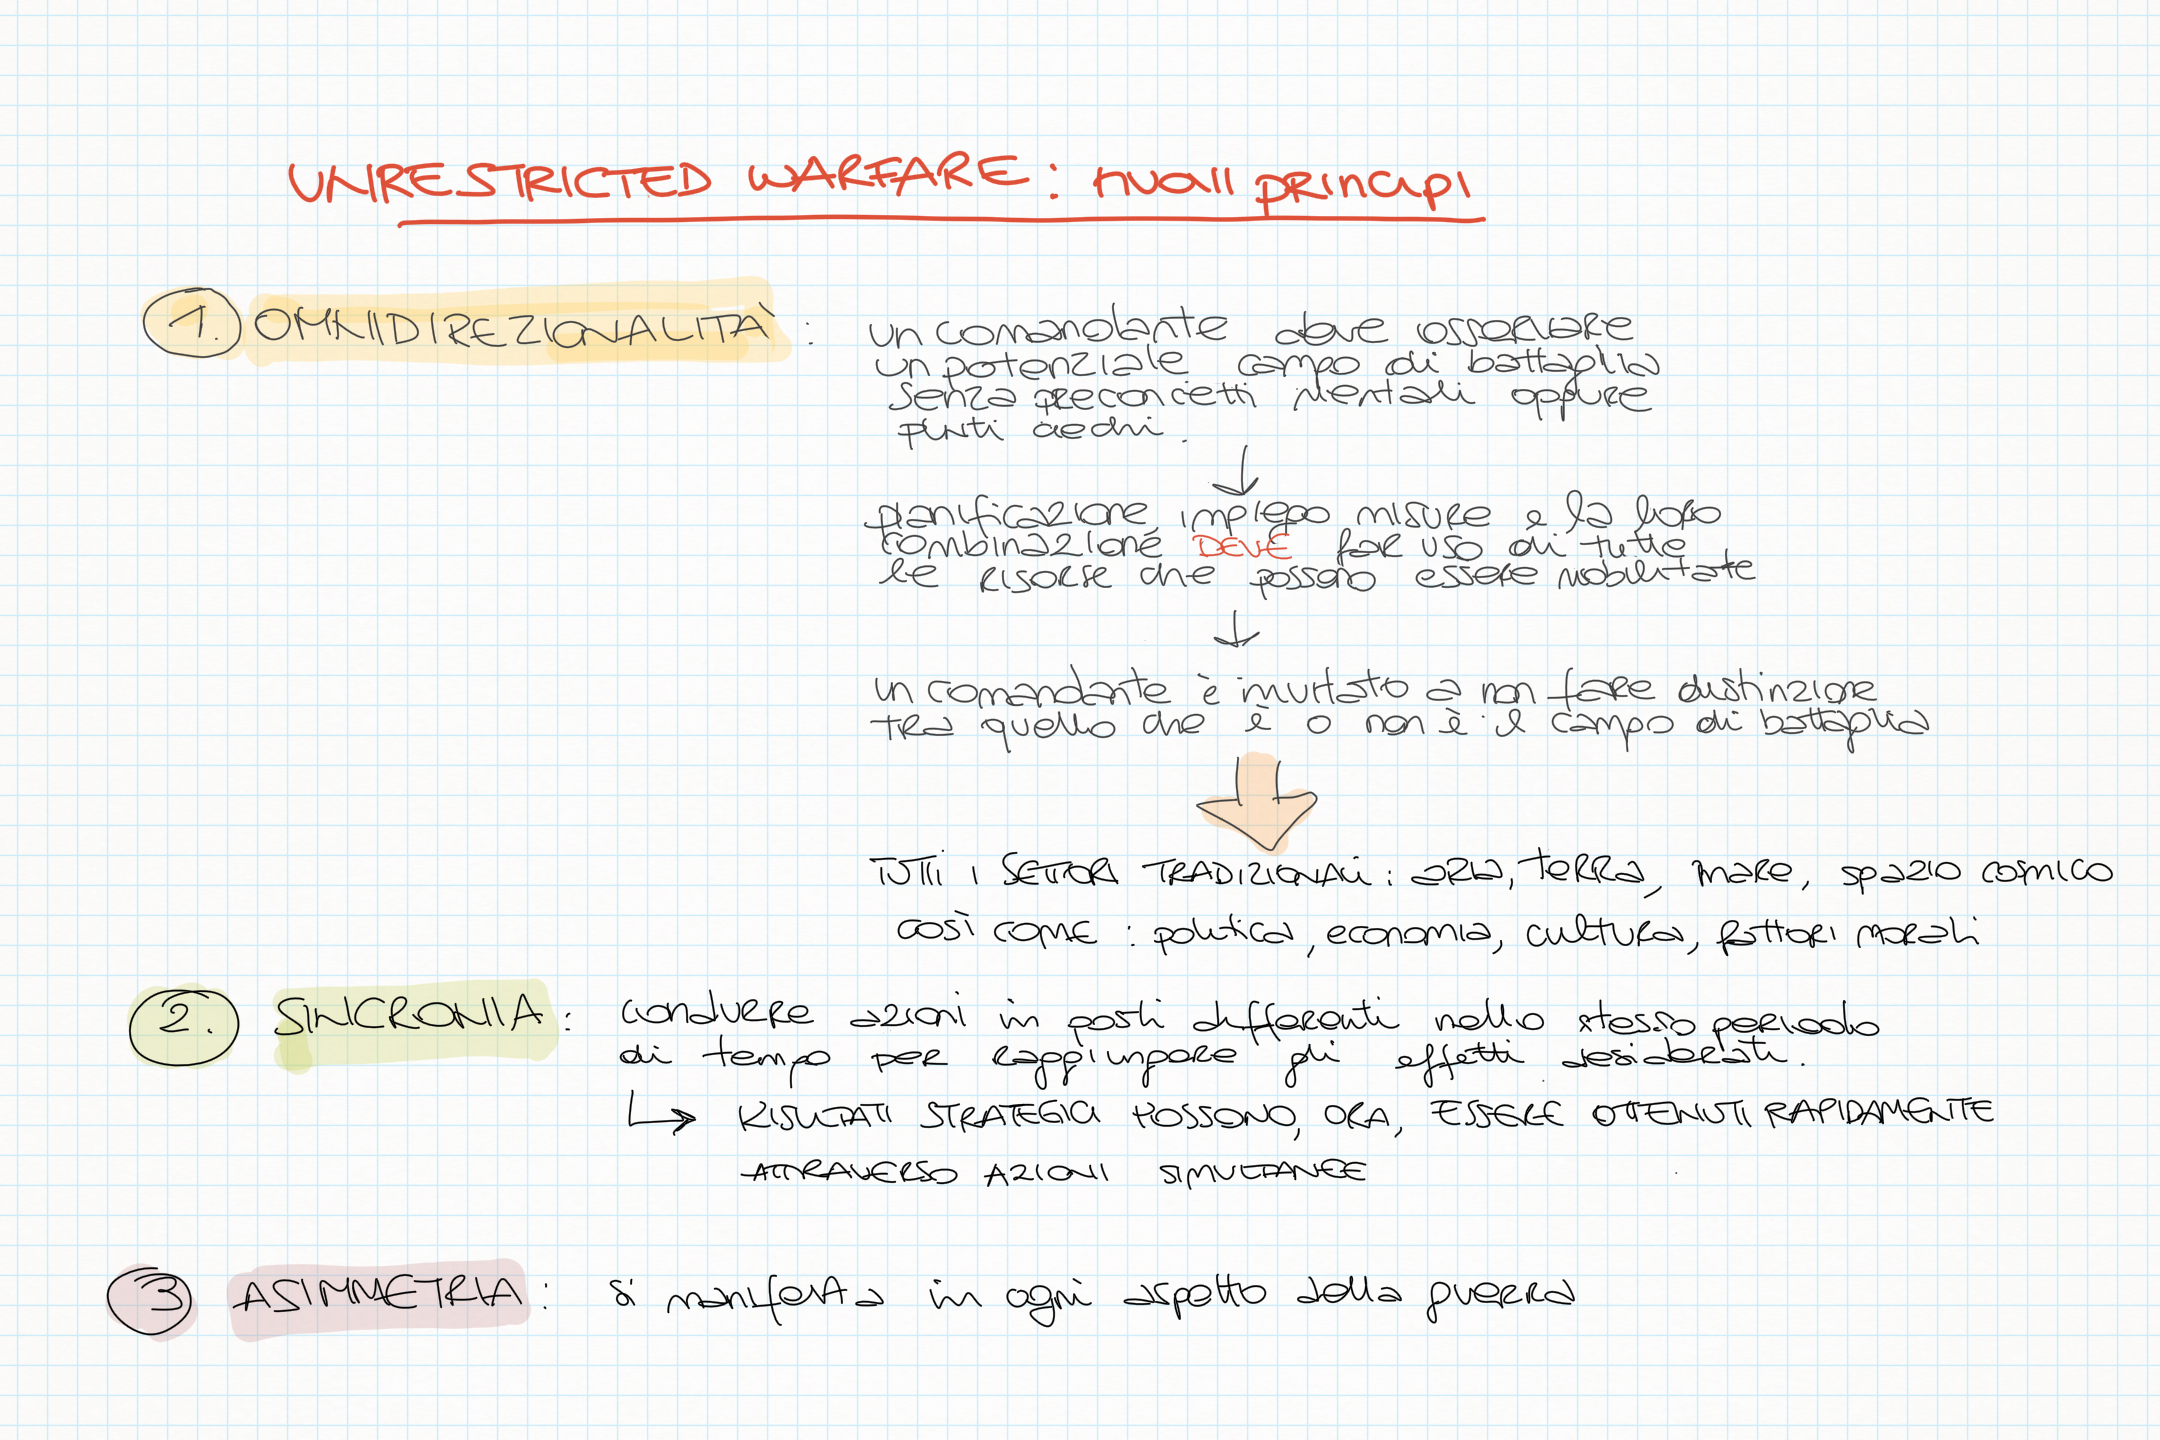 UNRESTRICTED WARFARE: nuovi principi
1. OMNIDIREZIONALITÀ: un comandante deve osservare
un potenziale campo di battaglia
senza preconcetti mentali oppure
punti ciechi.
pianificazione, impiego misure e la loro
combinazione DEVE far uso di tutte
le risorse che possono essere mobilitate
un comandante è invitato a non fare distinzione
tra quello che è o non è il campo di battaglia
TUTTI I SETTORI TRADIZIONALI: aria, terra, mare, spazio cosmico
così come: politica, economia, cultura, fattori morali
2. SINCRONIA: condurre azioni in posti differenti nello stesso periodo
di tempo per raggiungere gli effetti desiderati.
RISULTATI STRATEGICI POSSONO, ORA, ESSERE OTTENUTI RAPIDAMENTE
ATTRAVERSO AZIONI SIMULTANEE
3 ASIMMETRIA: si manifesta in ogni aspetto della guerra